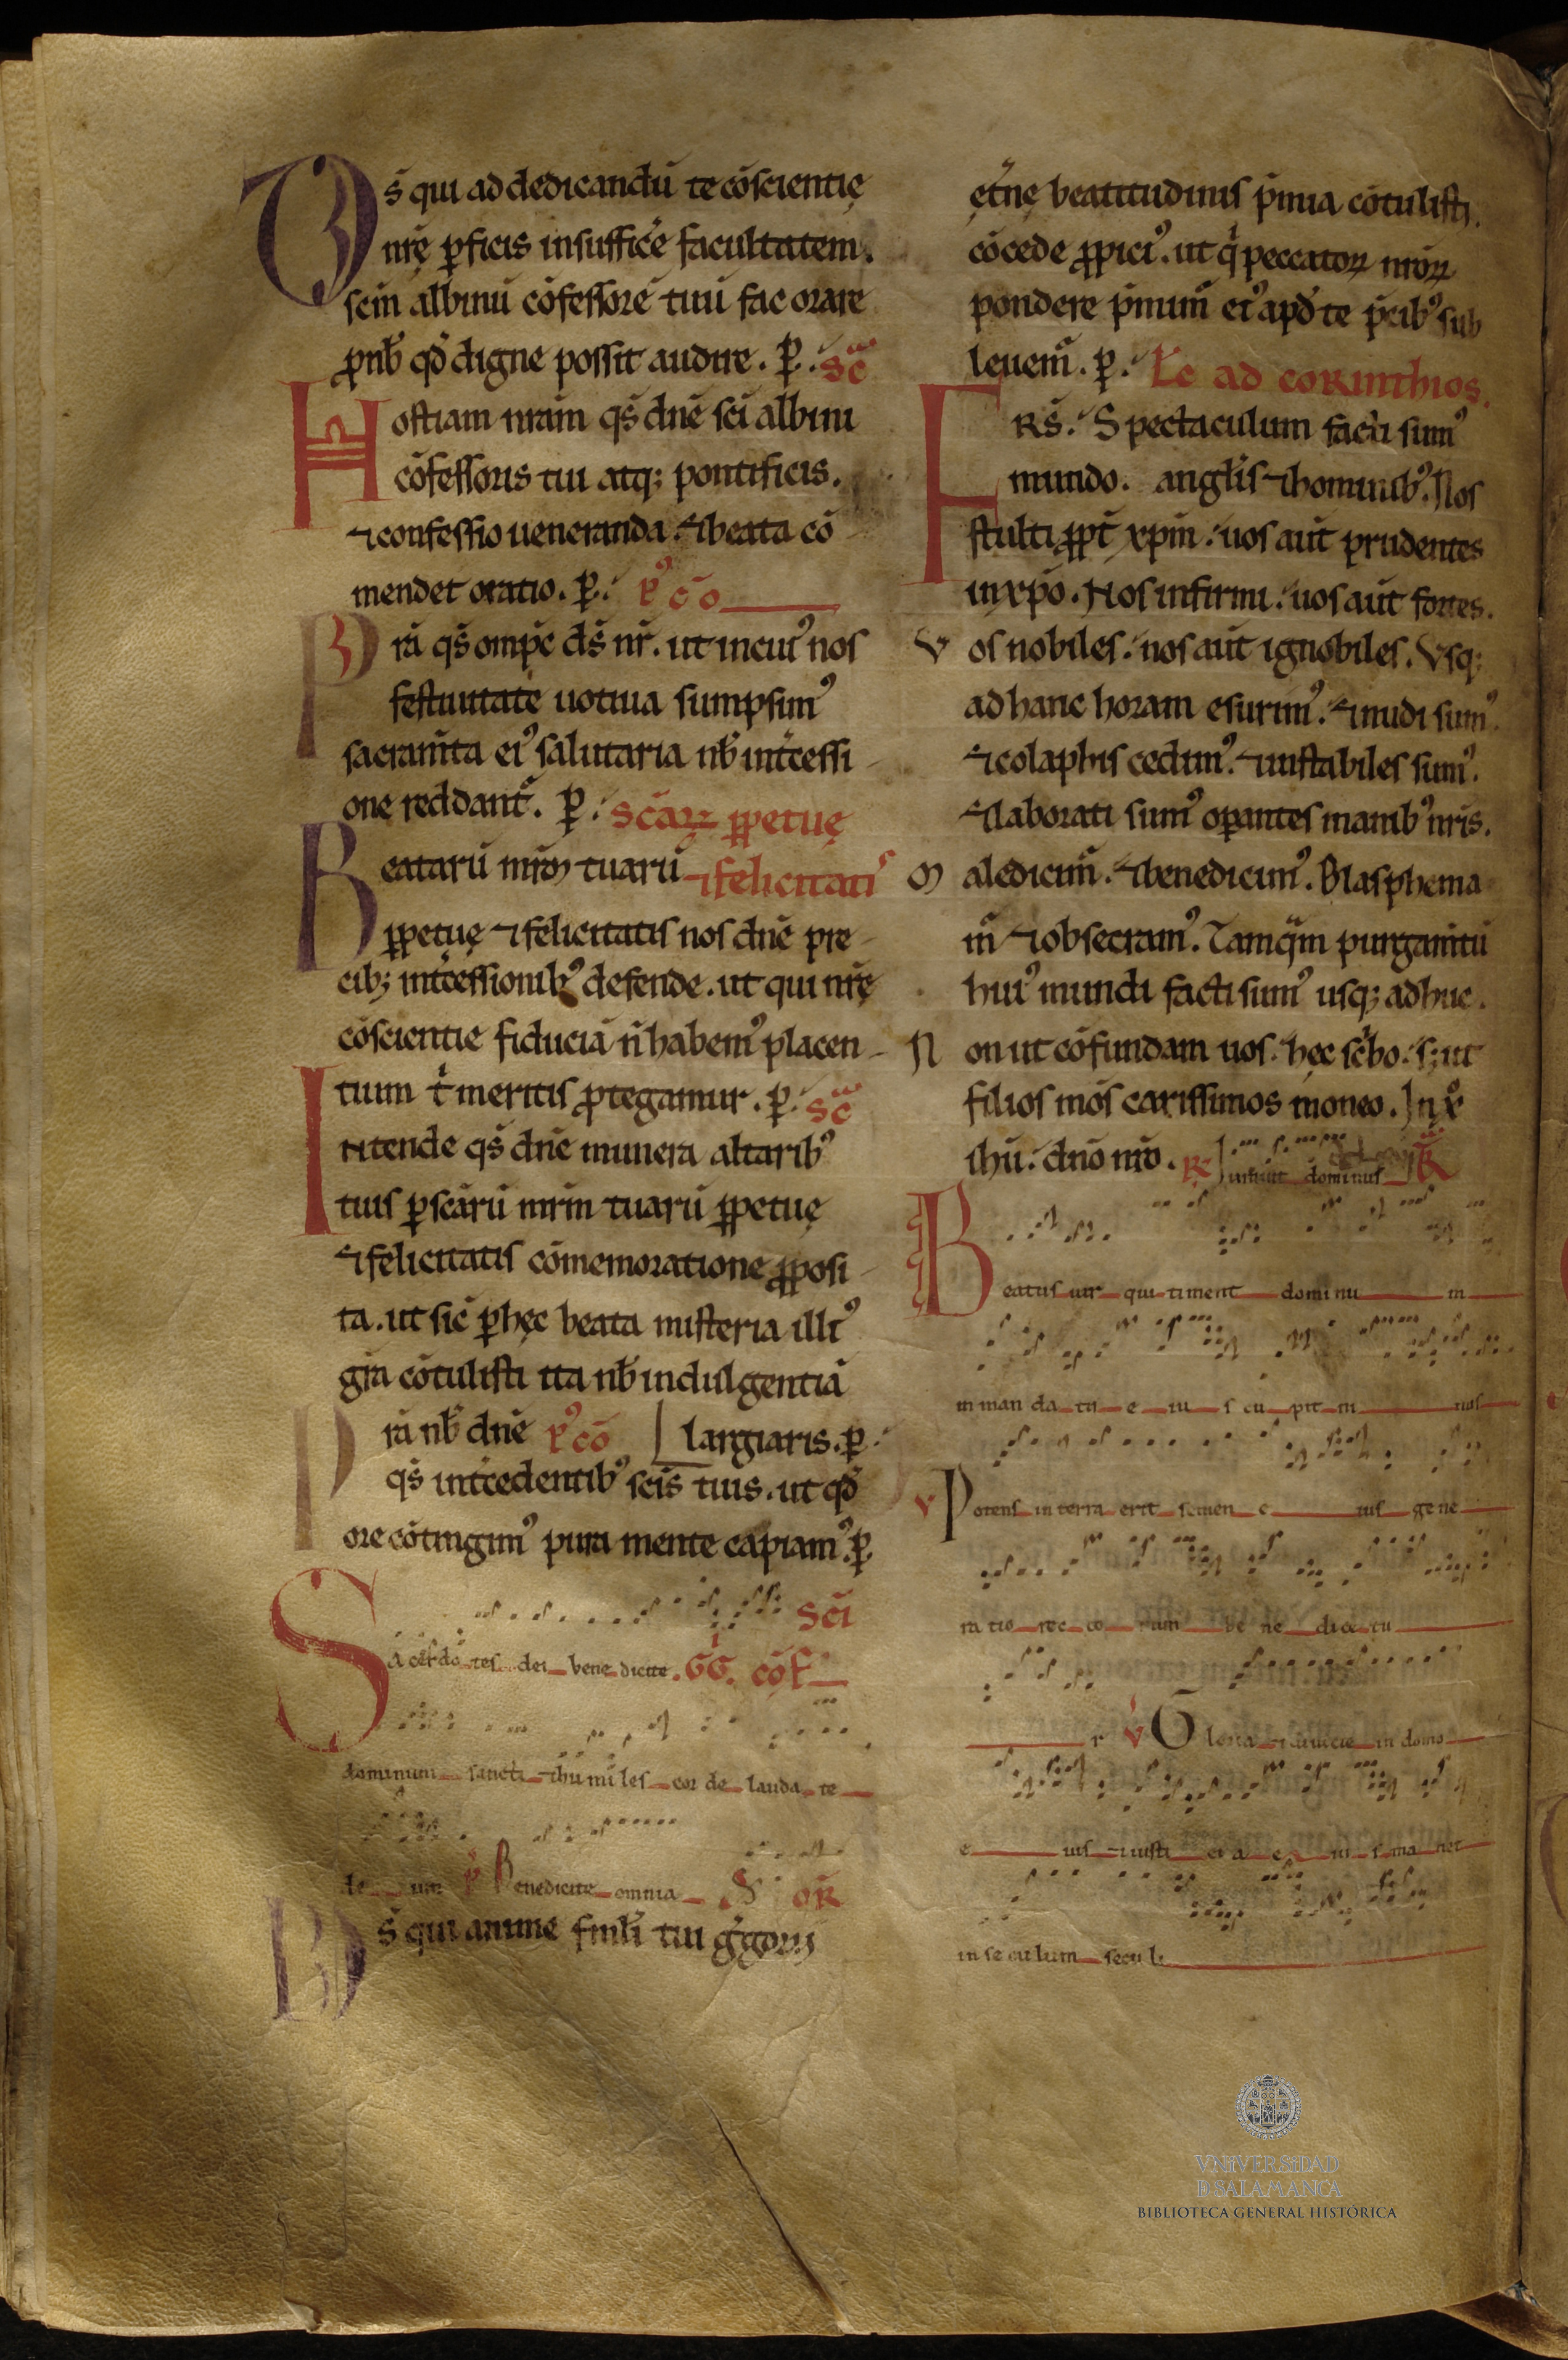 Ds̄ qui ad dedicandū te cōscientię
nrę̄ ꝑficis insufficē facultatem.
scm̄ albinū cōfessorē tuū fac orare
ꝓ nb̄ qđ digne possit audire. ꝑ. Sc̄
Hostiam nram̄ qs̄ dnē sc̄i albini
cōfessoris tui atq; pontificis.
⁊ confessio ueneranda. ⁊ beata cō
mendet oratio. ꝑ. P'cō
Prā qs̄ omp̄c ds̄ nr̄. ut in cui' nos
festiuitate uotiua sumpsim'
sacram̄ta ei' salutaria nb̄ int̄cessi
one reddant̄. ꝑ. Scāꝝ ꝑpetuę
Beatarū mr̄m tuarū ⁊ felicitati'
ꝑpetuę ⁊ felicitatis nos dnē pre
cib; int̄cessionib' defende. ut qui nrę̄
cōscientie fiduciā n̄ habem' placen
tium t' meritis ꝓtegamur. ꝑ. Sc̄
Intende qs̄ dnē munera altarib'
tuis ꝑ scārū mr̄m tuarū ꝑpetuę
⁊ felicitatis cōmemoratione ꝓposi
ta. ut sic̄ ꝑ hęc beata misteria illi'
gl̄a cōtulisti ita nb̄ indulgentiā
Prā nb̄ dnē P'cō largiaris. ꝑ.
qs̄ int̄cedentib' scīs tuis. ut qđ
ore cōtingim' pura mente capiam'. ꝑ.
Scī
Sacerdotes dei benedicite. GG. cōf
dominum sancti ⁊ humiles corde laudate
deum v Benedicite omnia OR
Ds̄ qui anime fml̄i tui g'gorii
ęt̄nę beatitudinis p̄mia cōtulisti.
cōcede ꝓpici'. ut q' peccatoꝝ nr̄oꝝ
pondere p̄mim̄ ei' apđ te p̄cib' sub
leuem̄. ꝑ. Lc̄ ad corinthios.
FRS̄. Spectaculum facti sum'
mundo. angl̄is ⁊ hominib'. Nos
stulti ꝓpt̄ xpm̄. uos aut̄ prudentes
in xpō. Nos infirmi. uos aut̄ fortes.
Vos nobiles. nos aut̄ ignobiles. Vsq;
ad hanc horam esurim'. ⁊ nudi sum'.
⁊ colaphis cedim'. ⁊ instabiles sum'.
⁊ laborati sum' oꝑantes manib' nris̄.
Maledicim̄. ⁊ benedicim'. Blasphema
m̄ ⁊ obsecram'. Tamq̄m purgam̄tū
hui' mundi facti sum' usq; ad huc.
Non ut cōfundam uos. hęc sc̄bo. s; ut
filios mōs carissimos moneo. In xp̄
ihū. dnō nrō. R Iurauit dominus R
Beatus uir qui timent dominum
in mandatu eius cupit ni mis
v Potens in terra erit semen eius gene
ratio rectorum benedicetu
r v Gloria ⁊ diuicie in domo
eius ⁊ iusticia eius manet
in seculum seculi
VNIVERSIDAD
D SALAMANCA
BIBLIOTECA GENERAL HISTÓRICA